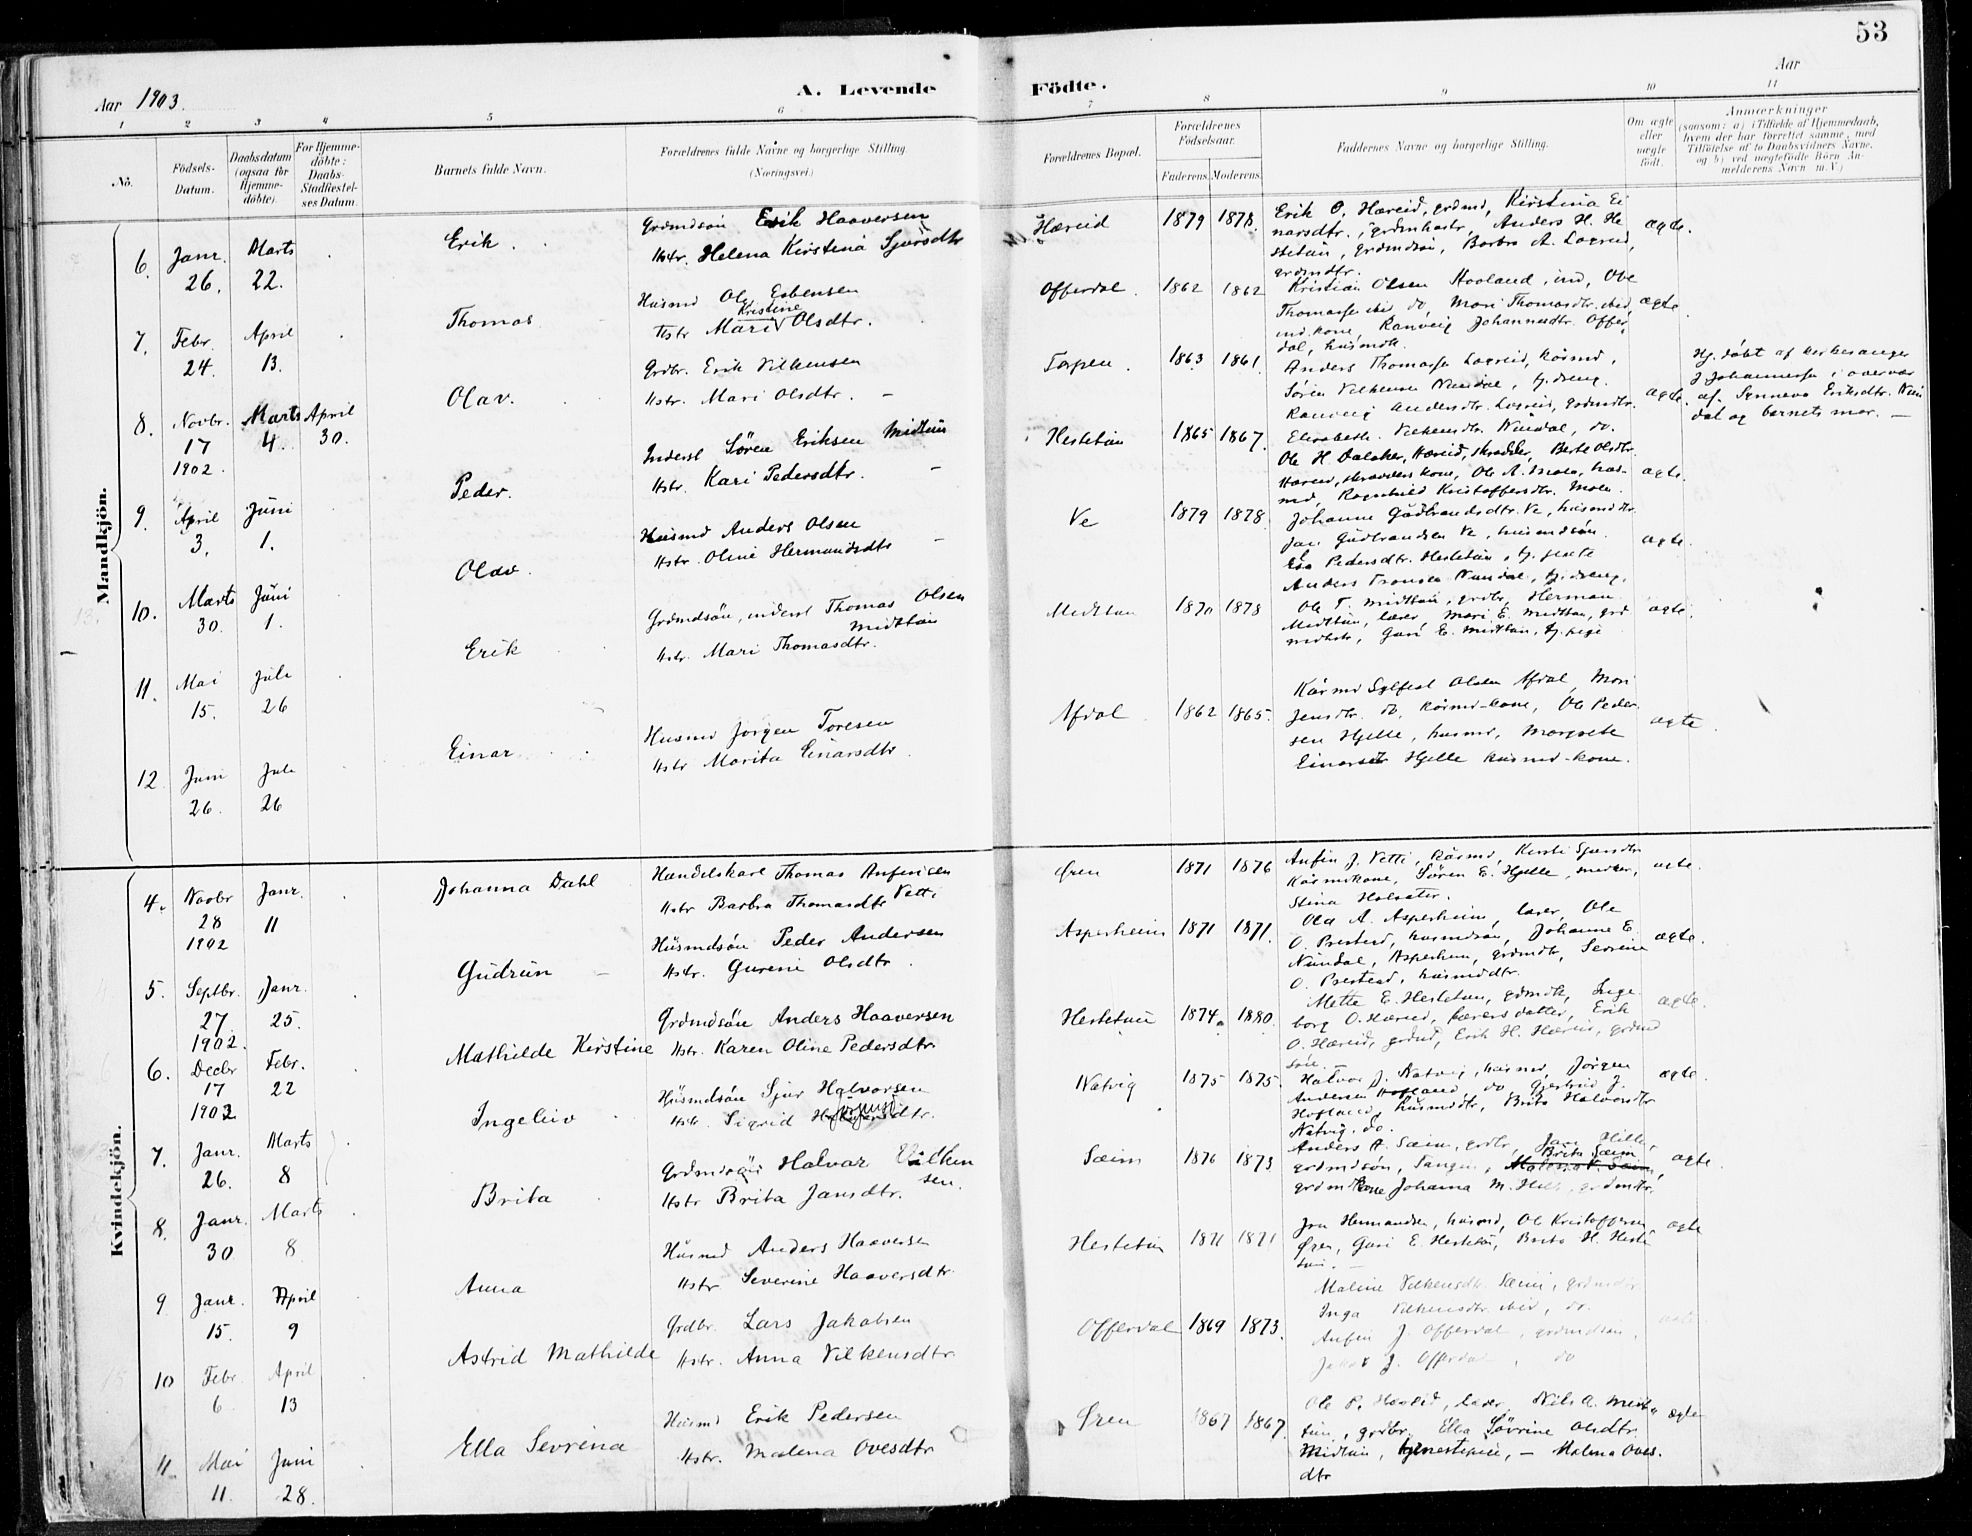 53
Aar 1903.
A. Levende Födte.
Aar
1 2 3 4 5 6 7 8 9 10 11
No.
Födsels-Datum.
Daabsdatum (ogsaa for Hjemme-döbte).
For Hjemme-döbte: Daabs-Stadfæstel-ses Datum.
Barnets fulde Navn.
Forældrenes fulde Navne og borgerlige Stilling.
(Næringsvei.)
Forældrenes Bopæl.
Forældrenes Födselsaar.
Faderens. Moderens.
Faddernes Navne og borgerlige Stilling.
Om ægte eller uægte födt.
Anmærkninger
(saasom: a) i Tilfælde af Hjemmedaab,
hvem der har forrettet samme, med
Tilföielse af to Daabsvidners Navne,
og b) ved uægtefödte Börn An-
melderens Navn m. V.)
Mandkjön.
6. Janr. 26. Marts 22.
Erik.
Grdmdsön Erik Haaversen
Hstr. Helena Kirstina Sjursdtr
Hæreid 1879 1878.
Erik O. Hæreid, grdmd, Kirstina Ei
narsdtr., grdmhustr, Anders H. He
stetun, grdmdsön, Barbra A. Lægreid,
grdmdtr.
ægte.
7. Febr. 24. April 13.
Thomas
Husmd Ole Esbensen
Hstr Mari Kristine Olsdtr.
Offerdal. 1862 1862
Kristian Olsen Hovland, ind, Ove
Thomassen ibid, do, Mari Thomasdtr. ibid,
ind. kone, Ranveig Johannesdtr. Offer
dal, husmdk.
ægte
8. Novbr. 17 1902. Marts 4. April 30.
Olav.
Grdbr. Erik Vilhensen
Hstr. Mari Olsdtr.
Torpen. 1863 1861.
Anders Thomassen Lægreid, kårmd,
Sören Vilhensen Nundal, tj.dreng.
Ranveig Andersdtr. Lægreid, grdmdtr.
Elisabeth Vilhensdtr. Nundal, do.
ægte.
Hj. döbt af kirkesanger
J Johannessen i overvær
af Synneva Eriksdtr. Nun
dal og barnets mor.
9. April 3. Juni 1.
Peder.
Inderst Sören Eriksen Midtun
Hstr. Kari Pedersdtr.
Hestetun 1865 1867.
Ole H. Dalaker, Hæreid, skrædder, Berte Olsdtr.
Hæreid, skrædders kone, Ole A. Moen, hus-
md, Ragnhild Kristoffersdtr. Moen.
ægte.
10. Marts 30. Juni 1.
Olav.
Husmd Anders Olsen
Hstr. Oline Hermundsdtr
Ve 1879 1878.
Johanne Gudbrandsdtr. Ve, husmdtr.
Jan Gudbrandsen Ve, husmdsön.
Eva Pedersdtr. Hestetun, tj. jente
Anders Tronsen Nundal, tj.dreng.
ægte.
11. Mai 15. Juli 26
Erik
Grdmdsön, inderst Thomas Olsen Midttun
Hstr. Mari Thomasdtr.
Midttun 1870 1878
Ole T. Midttun, grdbr, Herman
Midttun, lærer, Mari E. Midttun, grd
mdhstr, Guri E. Midttun, tj.pige
ægte.
12. Juni 26. Juli 26
Einar
Husmd Jörgen Toresen
Hstr Marita Einarsdtr.
Afdal 1862 1865.
Kårmd Sylfest Olsen Afdal, Mari
Jensdtr. do, kårmd-kone, Ole Peder
sen Hjelle, husmd, Margrete
Einarsdtr Hjelle husmd-kone.
ægte
Kvindekjön.
4. Novbr 28 1902 Janr. 11
Johanna Dahl
Handelskarl Thomas Anfinsen Vetti
Hstr Barbra Thomasdtr
Øren 1871 1876
Anfin J. Vetti, kårmd, Kirsti Sjursdtr
kårmdkone, Sören E. Hjelle, murer,
Stina Holsæter.
ægte.
5. Septbr. 27. 1902. Janr. 25.
Gudrun
Husmdsön Peder Andersen
Hstr. Gurine Olsdtr.
Asperheim 1871 1871.
Ola A. Asperheim, lærer, Ole
O. Presterd, husmdsön, Johanne E.
Nundal, Asperheim, grdmdtr, Sevrine
O. Presterd, husmdtr.
ægte.
6. Decbr 17 1902 Febr. 22
Mathilde Kirstine
Grdmdsön Anders Haaversen
Hstr. Karen Oline Pedersdtr.
Hestetun 1874. 1880.
Mette E. Hestetun, grdmdk, Inge
borg O. Hæreid, lærers datter, Erik
O. Hæreid, grdmd, Erik H. Hæreid, grdmd
sön.
ægte.
7. Janr. 26. Marts 8
Ingeleiv
Husmdsön Sjur Halvorsen
Hstr. Sigrid dtr.
Natvig 1875 1875.
Halvor J. Natvig, husmd, Jörgen
Andersen Hofland, do Gjertrud J.
Hofland, husmdtr, Brita Halvorsdtr
Natvig, do.
ægte.
8. Janr. 30 Marts 8
Brita
Grdmdsön Halvar Vilken
sen.
Hstr Brita Jansdtr.
Sæim 1876 1873
Anders A. Sæim, grdbr, Jan Hille,
grdmdsön, Tangen, Brita Sæim,
grdmdkone Johanna M. Hille, grdmdtr.
ægte.
9 Janr. 15. April 9
Anna
Husmd Anders Haaversen
Hstr Severine Haaversdtr.
Hestetun 1871 1871
Jon Hermundsen, husmd, Ole Kristoffersen
Øren, Guri E. Hestetun, Brita H. Heste
tun.
ægte
10 Febr. 6 April 13
Astrid Mathilde
Grdbr. Lars Jakobsen
Hstr. Anna Vilkensdtr.
Offerdal 1869 1873.
Maline Vilkensdtr. Sæim, grdmdtr.
Inga Vilkensdtr. ibid, do.
Anfin J. Offerdal, grdmdsön,
Jakob J. Offerdal, do
ægte
11. Mai 11. Juni 28.
Ella Sevrina
Husmd Erik Pedersen
Hstr. Malena Ovesdtr
Øren 1867 1867.
Ole P. Hæreid, lærer, Nils A. Midt-
tun, grdbr. Ella Sövrine Olsdtr.
Midttun, tjenestepie, – Malena Oves.
dtr
ægte